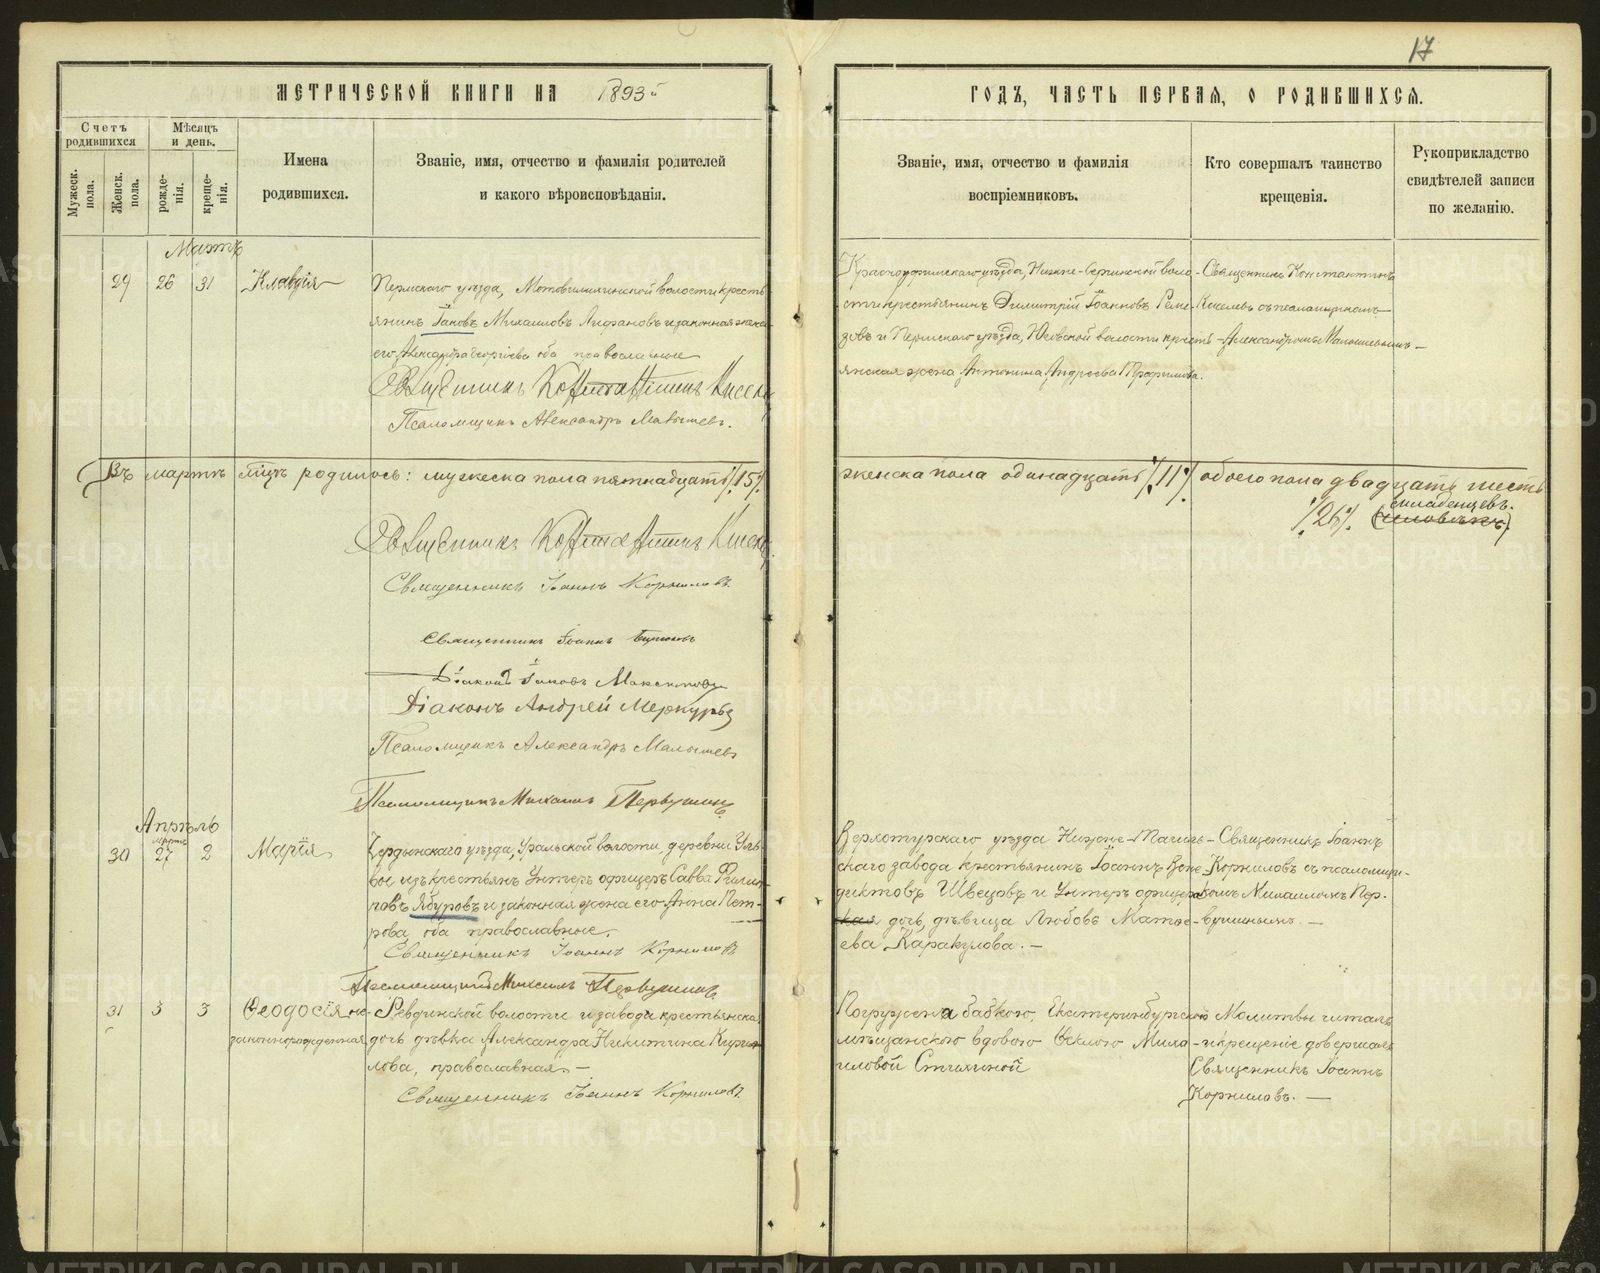 17
МЕТРИЧЕСКОЙ КНИГИ НА 1893й
ГОДЪ, ЧАСТЬ ПЕРВАЯ, О РОДИВШИХСЯ.
Счетъ родившихся
Мужеск. пола.
Женск. пола.
Мѣсяцъ и день.
рожде-нія.
креще-нія.
Имена родившихся.
Званіе, имя, отчество и фамилія родителей
и какого вѣроисповѣданія.
Званіе, имя, отчество и фамилія
воспріемниковъ.
Кто совершалъ таинство
крещенія.
Рукоприкладство
свидѣтелей записи
по желанію.
Мартъ
29 26 31 Клавдія
Пермскаго уѣзда, Мотовилихинской волости кресть-
янинъ Іаковъ Михаиловъ и законная жена
его Александра Георгіева оба православные
Священникъ Константинъ
Псаломщикъ Александръ Малышевъ.
Красноуфимскаго уѣзда, Нижне-Сергинской воло-
сти крестьянинъ Димитрій Іоанновъ Реме-
зовъ и Пермскаго уѣзда, волости кресть-
янская жена Антонина Андреева
Священникъ Константинъ
Киселевъ съ псаломщикомъ
Александромъ Малышевымъ
Въ мартѣ мцѣ родилось: мужеска пола пятнадцать /.15/.
женска пола одинадцать /.11/. обоего пола двадцать шесть
/.26/. младенцевъ.
(человѣкъ)
Священникъ Константинъ
Священникъ Іоаннъ Корниловъ
Священникъ Іоаннъ
Діаконъ Іаковъ Максимовъ
Діаконъ Андрей Меркурьевъ
Псаломщикъ Александръ Малышевъ
Псаломщикъ Михаилъ Первушинъ
Апрѣль
Мартъ
30 27 2 Марія
Чердынскаго уѣзда, Уральской волости деревни Уль-
вы изъ крестьянъ Унтеръ офицеръ Савва Филип-
повъ Ябуровъ и законная жена его Анна Пет-
рова оба православные.
Священникъ Іоаннъ Корниловъ
Псаломщикъ Михаилъ Первушинъ
Верхотурскаго уѣзда Нижне-Тагиль-
скаго завода крестьянинъ Іоаннъ Вене-
диктовъ Швецовъ и Унтеръ офицер-
ская дочь, дѣвица Любовь Матве-
ева Каракулова.
Священникъ Іоаннъ
Корниловъ съ псаломщи-
комъ Михаиломъ Пер-
вушинымъ.
31 3 3 Ѳеодосія не-
законнорожденная
Ревдинской волости и завода крестьянская
дочь дѣвка Александра Никитина Кирил-
лова, православная.
Священникъ Іоаннъ Корниловъ
Погружена бабкою, Екатеринбургской
мѣщанскою вдовою Ѳеклою Миха-
иловой
Молитвы читалъ
и крещеніе довершалъ
Священникъ Іоаннъ
Корниловъ.
METRIKI.GASO-URAL.RU